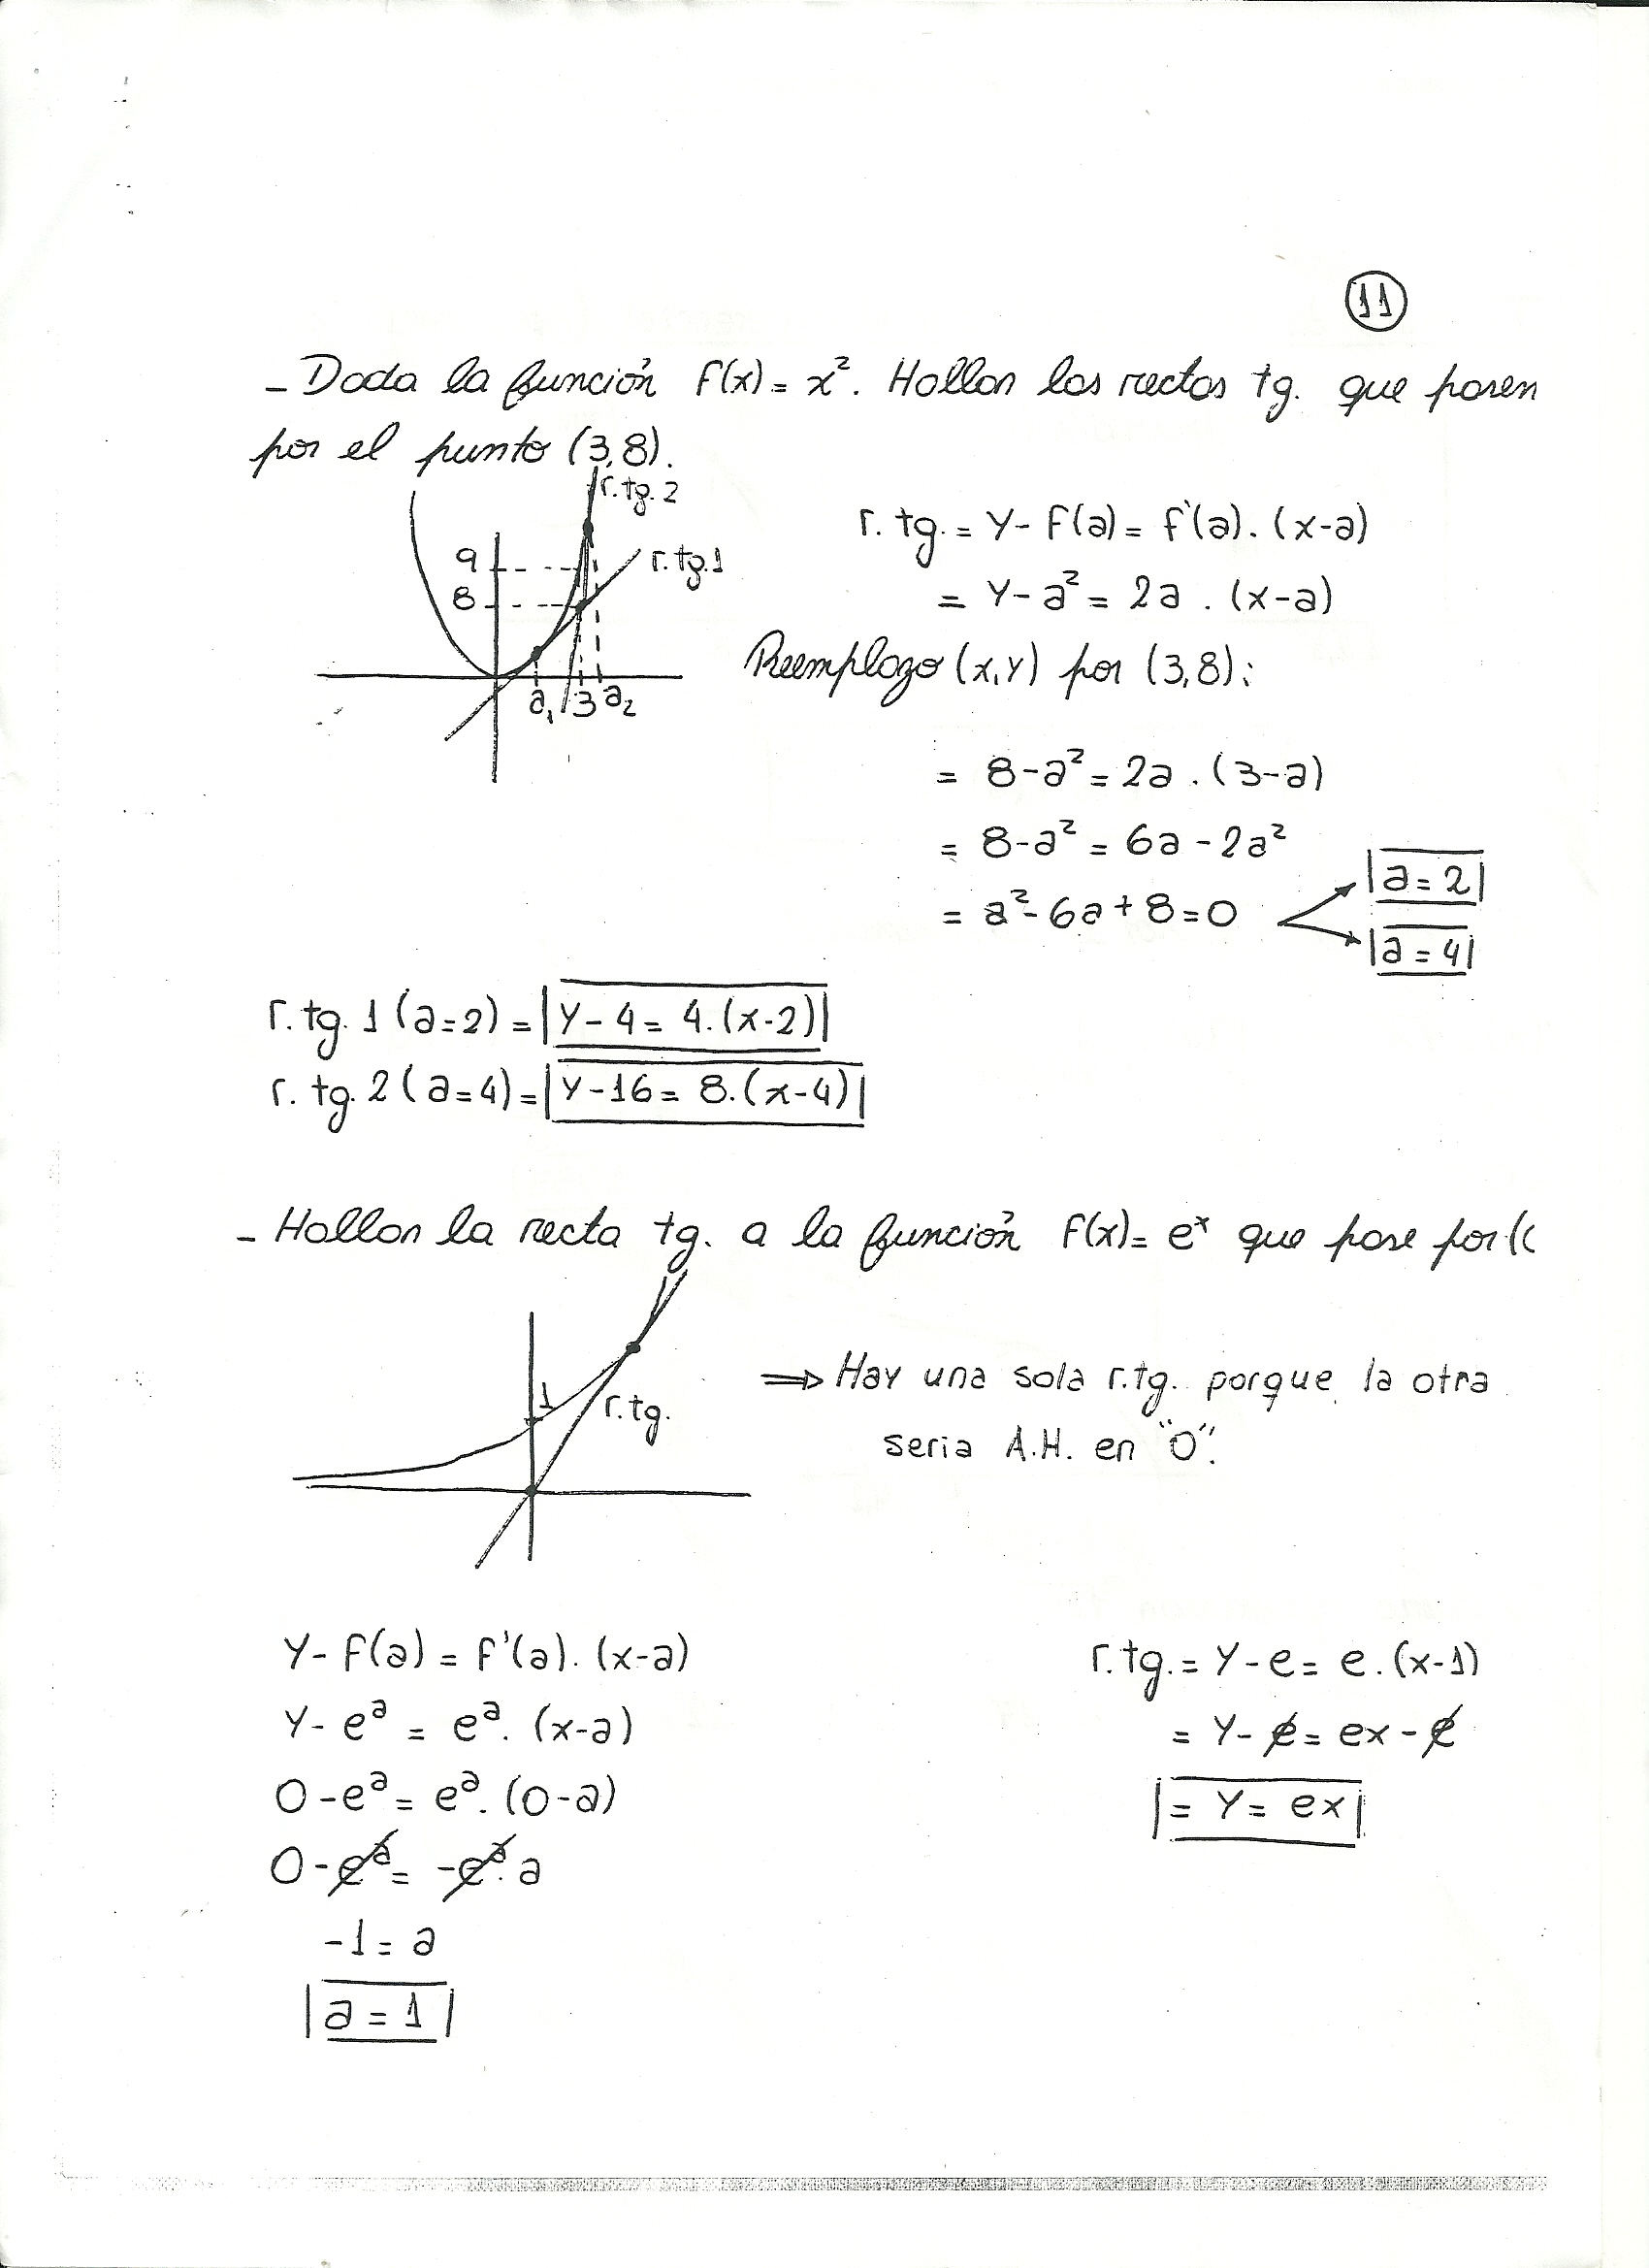 11
- Dada la función F(x) = x². Hallar las rectas tg. que pasen
por el punto (3,8).
r.tg.2
9
r.tg.1
8
a₁ 3 a₂
r. tg. = Y - F(a) = F'(a). (x-a)
= Y - a² = 2a . (x-a)
Reemplazo (x,Y) por (3,8):
= 8 - a² = 2a . (3-a)
= 8 - a² = 6a - 2a²
= a² - 6a + 8 = 0
a = 2
a = 4
r. tg. 1 (a=2) = Y - 4 = 4.(x-2)
r. tg. 2 (a=4) = Y - 16 = 8.(x-4)
- Hallar la recta tg. a la función F(x) = eˣ que pase por (
1
r.tg.
⇒ Hay una sola r.tg. porque la otra
seria A.H. en "0".
Y - F(a) = F'(a). (x-a)
Y - eᵃ = eᵃ. (x-a)
0 - eᵃ = eᵃ. (0-a)
0 - eᵃ = -eᵃ. a
-1 = a
a = 1
r.tg. = Y - e = e.(x-1)
= Y - e = ex - e
= Y = ex